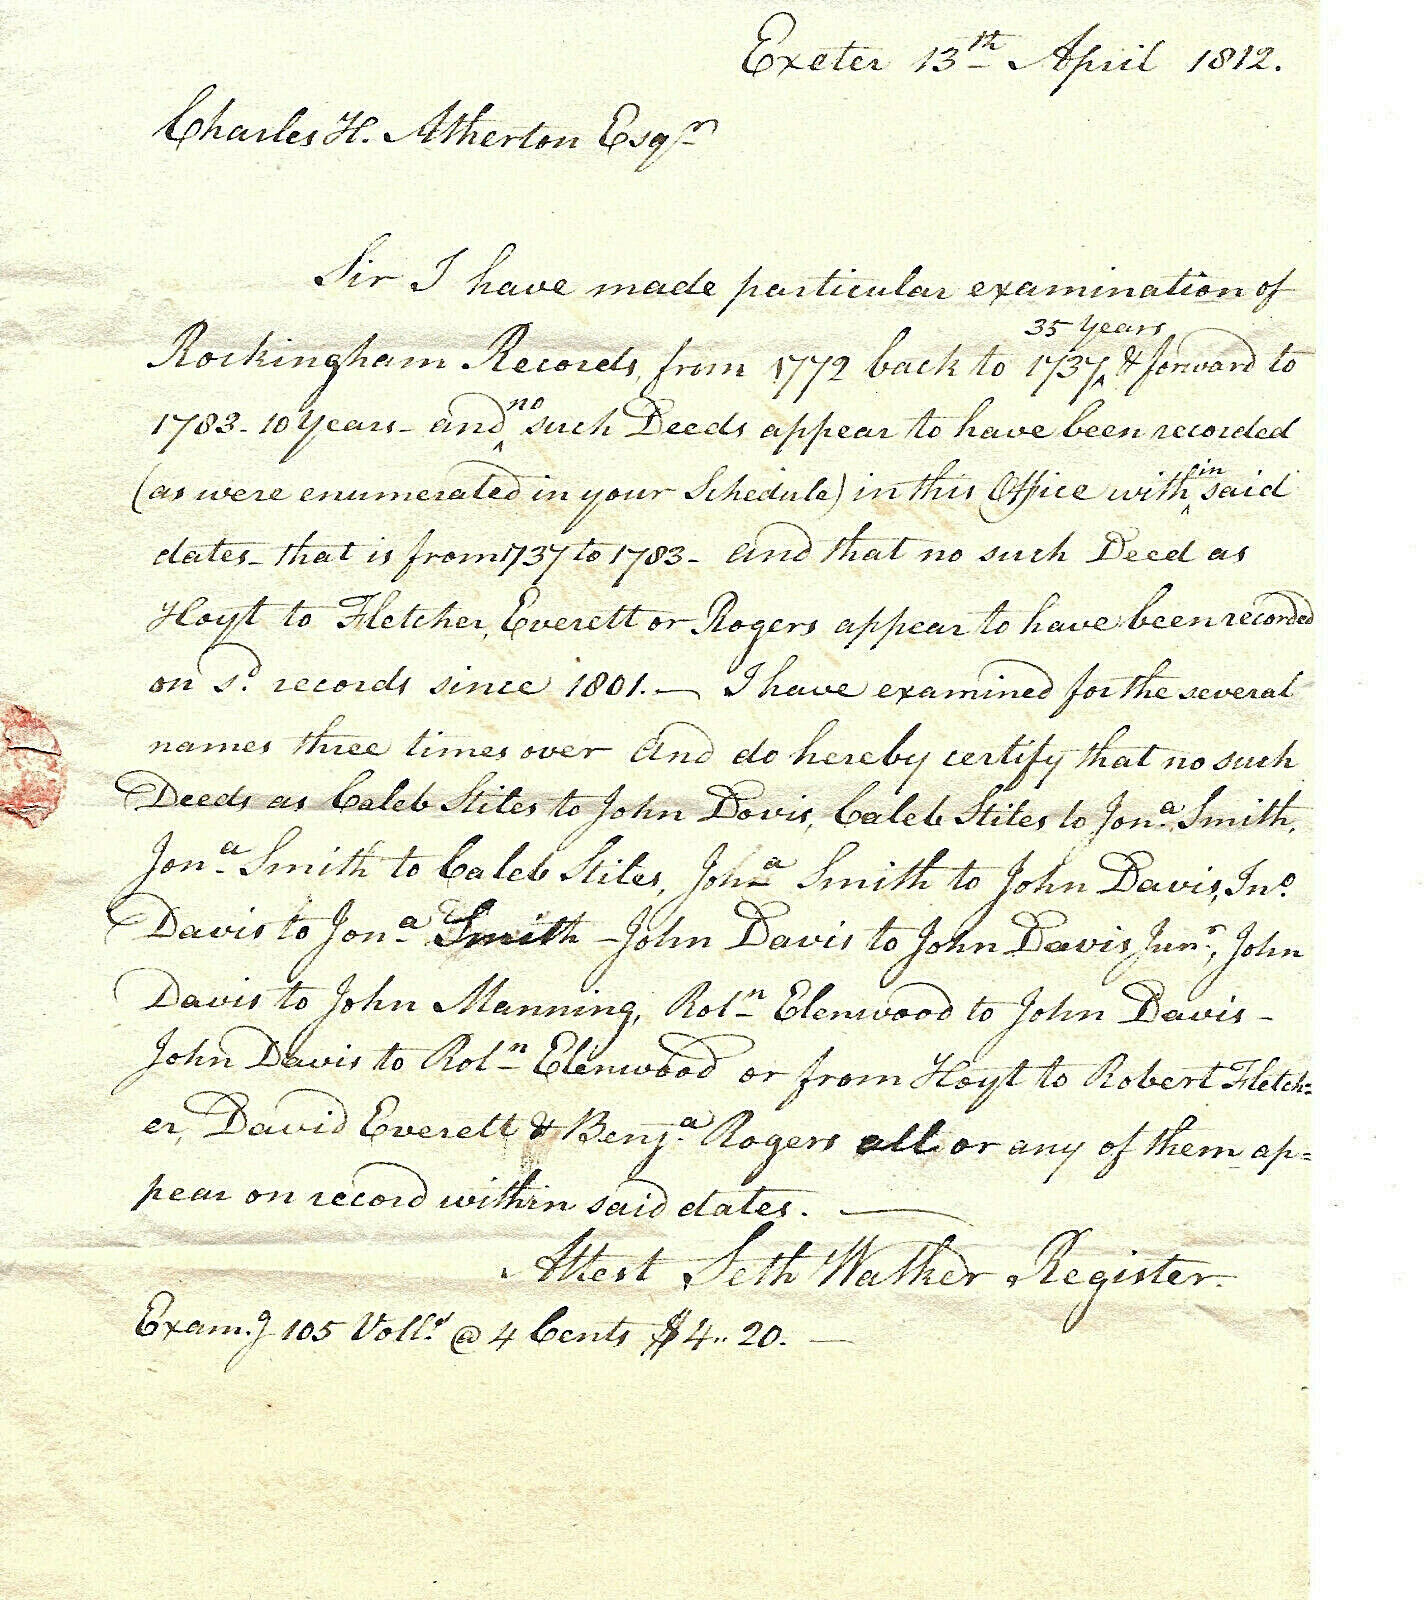 Exeter 13th April 1812.
Charles H. Atherton Esqr
Sir I have made particular examination of
35 Years
Rockingham Records, from 1772 back to 1737 ‸ & forward to
no
1783 - 10 Years - and ‸ such Deeds appear to have been recorded
in
(as were enumerated in your Schedule) in this Office with ‸ said
dates - that is from 1737 to 1783 - and that no such Deed as
Hoyt to Fletcher, Everett or Rogers appear to have been recorded
on sd. records since 1801. — I have examined for the several
names three times over and do hereby certify that no such
Deeds as Caleb Stiles to John Davis, Caleb Stiles to Jona. Smith,
Jona. Smith to Caleb Stiles, Jona Smith to John Davis, Jno.
Davis to Jona. Smith - John Davis to John Davis Junr., John
Davis to John Manning, Robn Elenwood to John Davis -
John Davis to Robn Elenwood or from Hoyt to Robert Fletch=
er, David Everett & Benja. Rogers all or any of them ap=
pear on record within said dates. —
Attest Seth Walker Register.
Exam.g 105 Volls @ 4 Cents $4..20. —